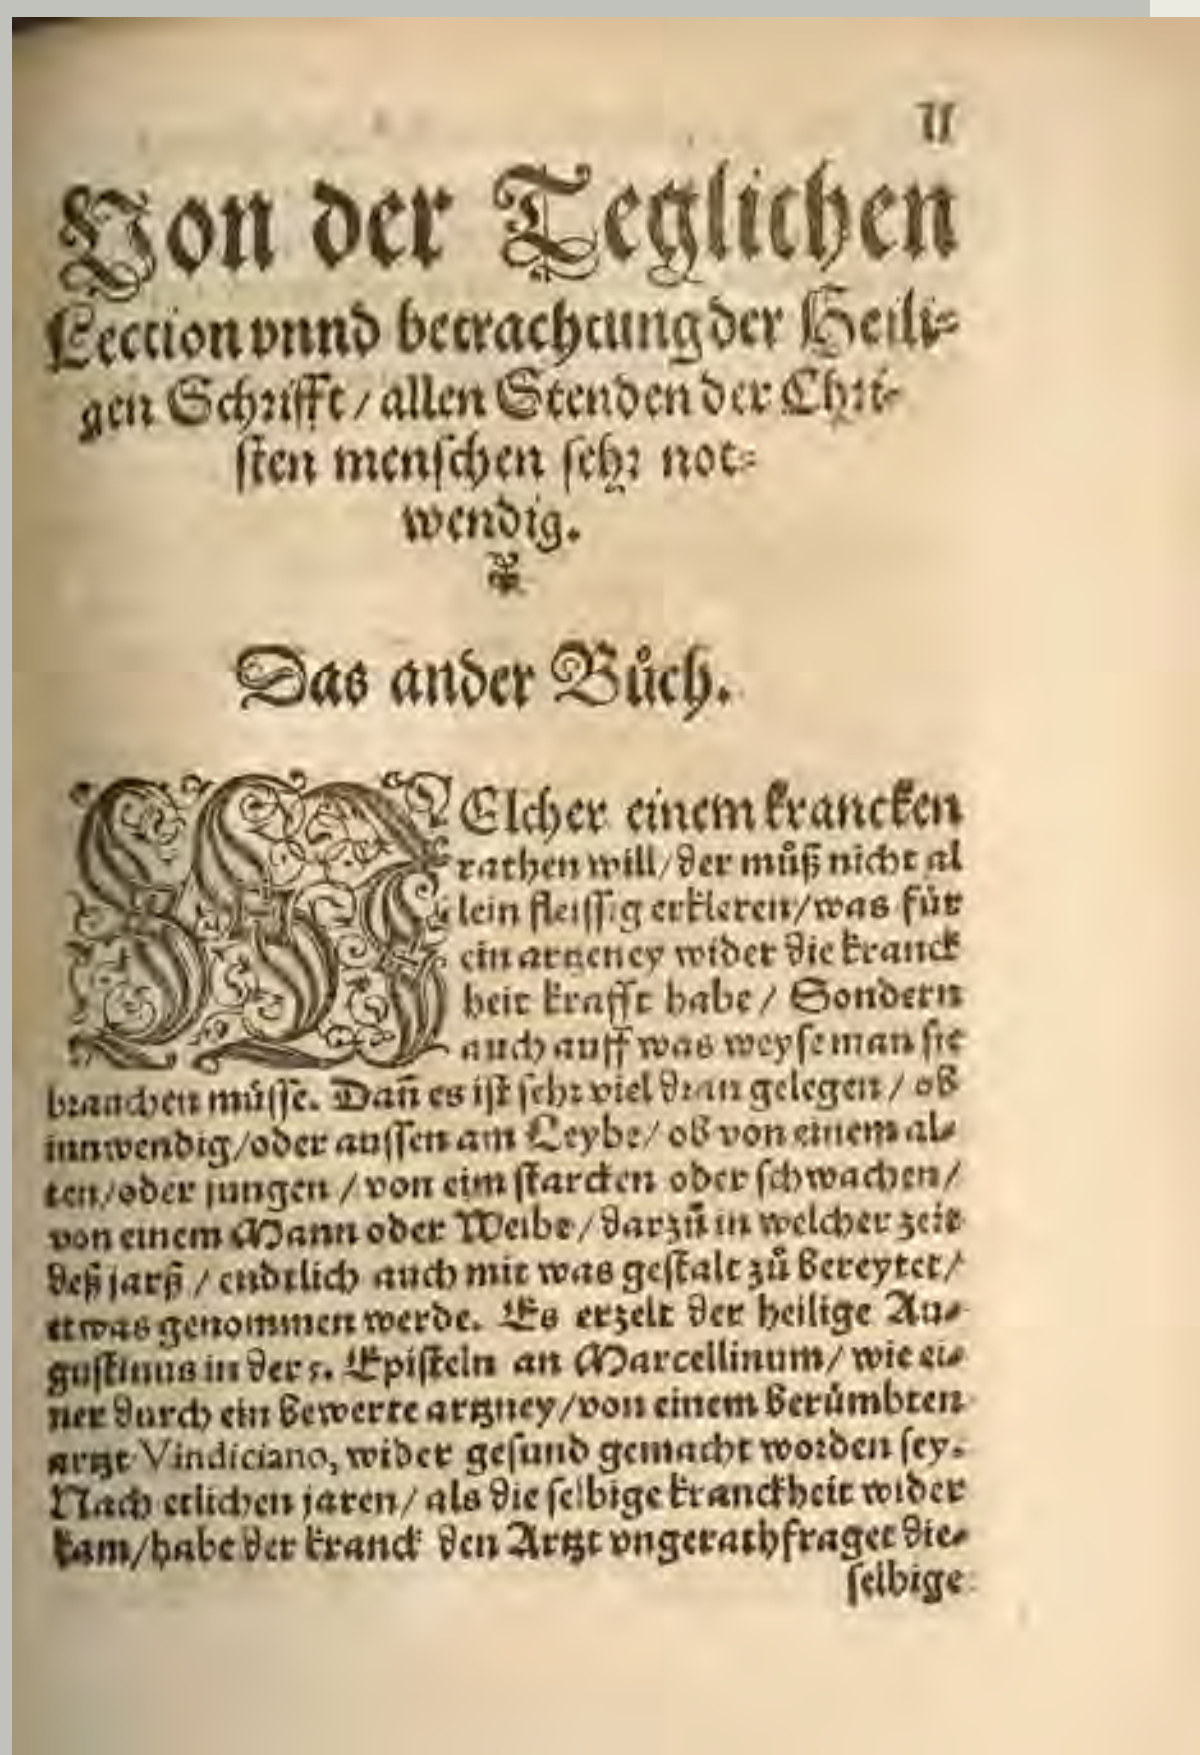 II
Von der Teglichen
Lection vnnd betrachtung der Heili⸗
gen Schrifft / allen Stenden der Chri⸗
sten menschen sehr not⸗
wendig.
Das ander Bůch.
WElcher einem krancken
rathen will / der můß nicht al
lein fleissig erkleren / was für
ein artzeney wider die kranck
heit krafft habe / Sondern
auch auff was weyse man sie
brauchen müsse. Dañ es ist sehr viel dran gelegen / ob
innwendig / oder aussen am Leybe / ob von einem al⸗
ten / oder jungen / von eim starcken oder schwachen /
von einem Mann oder Weibe / darzů in welcher zeit
deß jarß / endtlich auch mit was gestalt zů bereytet /
etwas genommen werde. Es erzelt der heilige Au⸗
gustinus in der 5. Episteln an Marcellinum / wie ei⸗
ner durch ein bewerte artzney / von einem berümbten
artzt Vindiciano, wider gesund gemacht worden sey.
Nach etlichen jaren / als die selbige kranckheit wider
kam / habe der kranck den Artzt vngerathfraget die⸗
selbige